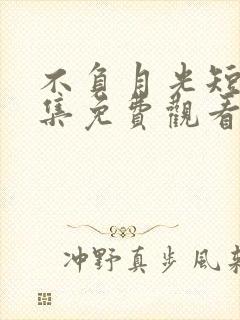 不負月光短
集免費觀看
冲野真步風